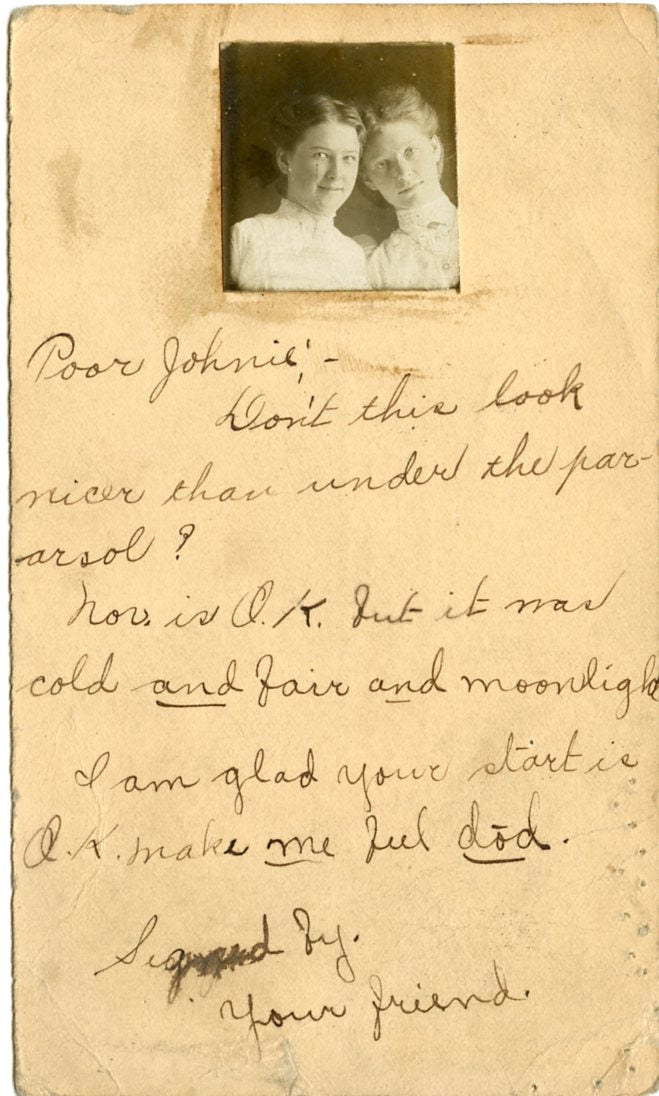 Poor Johnie! -
Don't this look
nicer than under the par-
arsol ?
Nov. is O.K. but it was
cold and fair and moonligh
I am glad your start is
O.K. make me feel dōd.
Signed by.
Your friend.